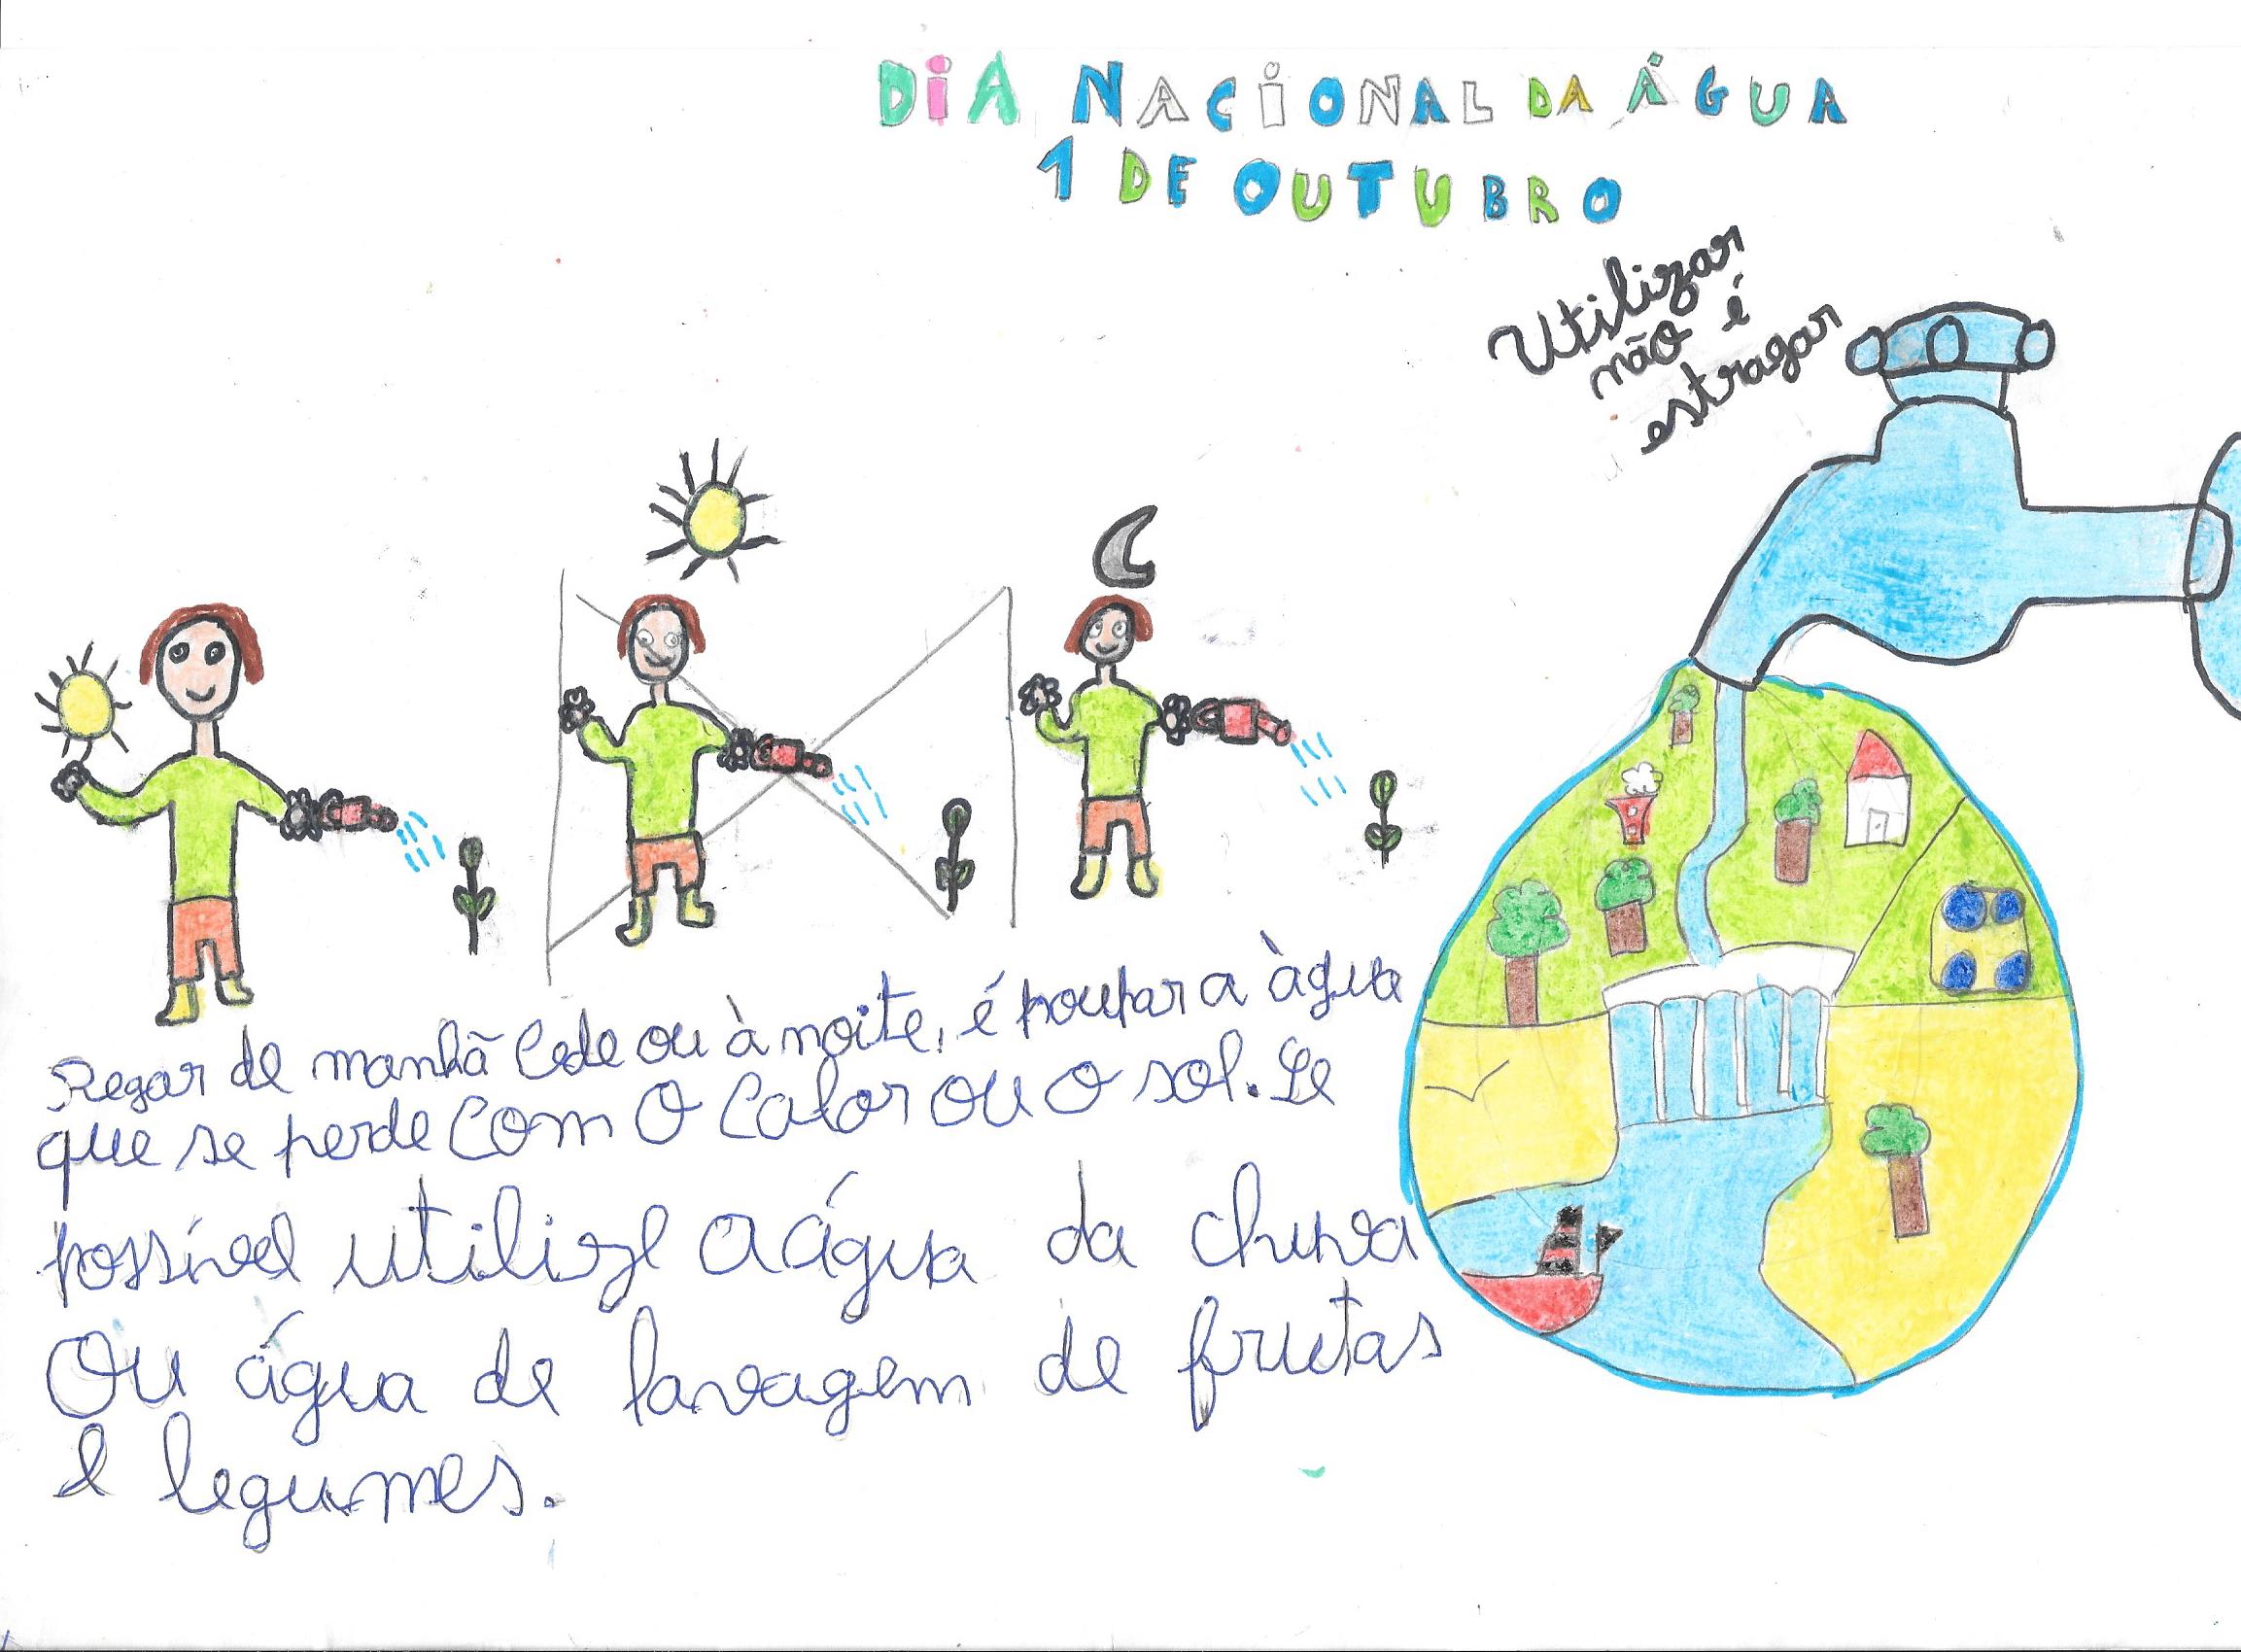 DiA NACiONAL DA ÁGUA
1 DE OUTUBRO
Utilizar
não é
estragar
Regar de manhã Cedo ou à noite, é poupar a àgua
que se perde Com O Calor ou o sol. Se
possível utilize a água da chuva
Ou água de lavagem de frutas
e legumes.